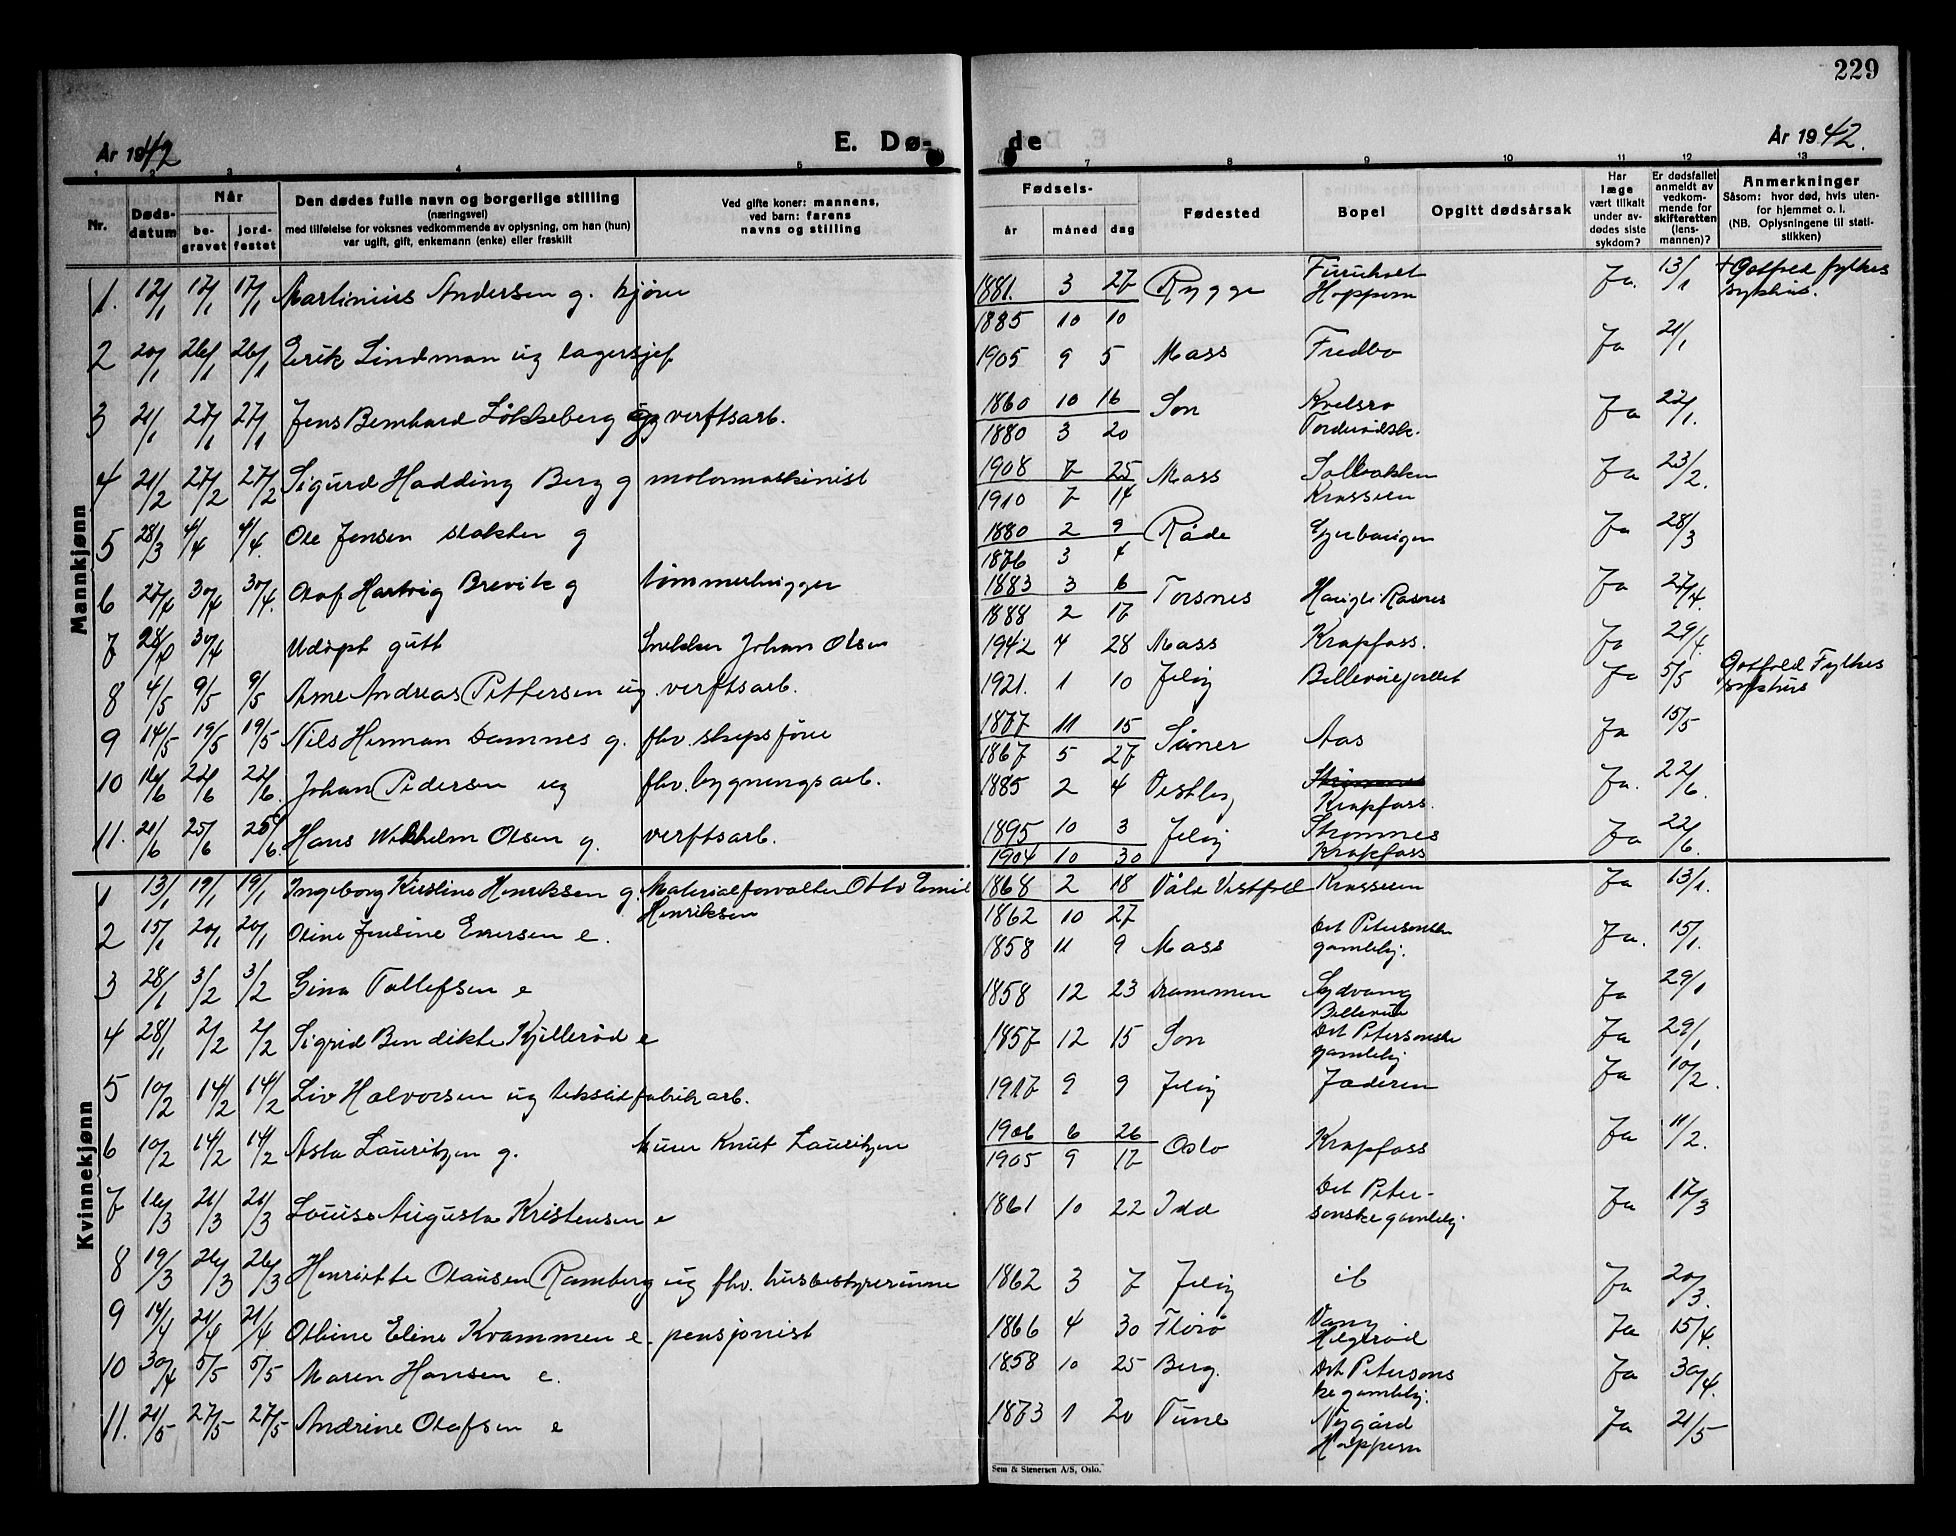 229
År 1942
E. Dø-
de
År 1942.
1 2 3 4 5
7 8 9 10 11 12 13
Nr.
Døds-
datum
Når
be-
gravet
jord-
festet
Den dødes fulle navn og borgerlige stilling
(næringsvei)
med tilføielse for voksnes vedkommende av oplysning, om han (hun)
var ugift, gift, enkemann (enke) eller fraskilt
Ved gifte koner: mannens,
ved barn: farens
navns og stilling
Fødsels-
år måned dag
Fødested
Bopel
Opgitt dødsårsak
Har
læge
vært tilkalt
under av-
dødes siste
sykdom?
Er dødsfallet
anmeldt av
vedkom-
mende for
skifteretten
(lens-
mannen)?
Anmerkninger
Såsom: hvor død, hvis uten-
for hjemmet o. l.
(NB. Oplysningene til stati-
stikken)
Mankjønn
1. 12/1 17/1 17/1 Martinius Andersen g. kjører 1881. 3 27 Rygge Furuholt Hoppern Ja. 13/1 + Østfold fylkes sykehus.
1885 10 10
2 20/1 26/1 26/1 Erik Lindman ug lagersjef 1905 9 5 Moss Fredbo Ja 21/1
3 21/1 27/1 27/1 Jens Bernhard Løkkeberg g verftsarb. 1860 10 16 Son Kvelsro Ja 22/1.
1880 3 20
4 21/2 27/2 27/2 Sigurd Hadding Berg g motormaskinist 1908 7 25 Moss Solbakken Krosseren Ja 23/2.
1910 7 14
5 28/3 4/4 4/4. Ole Jensen slakter g 1880 2 9 Råde Ja 28/3
1876 3 4
6 27/4 30/4 30/4. Olaf Hartvig Brevik g tømmerhugger 1883 3 6 Torsnes Ja 27/4.
1888 2 17
7 28/4 30/4 Udøpt gutt Snekker Johan Olsen 1942 4 28 Moss Krapfoss. Ja 29/4.
8 4/5 9/5 9/5 Arne Andreas Pettersen ug. verftsarb. 1921. 1 10 Jeløy Bellevuejordet Ja 5/5 Østfold Fylkes sykehus
9 14/5 19/5 19/5 Nils Herman Damnes g. fhv. skipsfører 1877 11 15 Såner Aas Ja 15/5
1867 5 27
10 16/6 22/6 22/6. Johan Pedersen ug fhv. bygningsarb. 1885 2 4 Vestby Krapfoss. Ja. 22/6.
11. 21/6 25/6 25/6. Hans Wilhelm Olsen g. verftsarb. 1895 10 3 Jeløy Strømnes Krapfoss Ja 22/6.
1904 10 30
Kvinnekjønn
1 13/1 19/1 19/1 Ingeborg Kirstine Henriksen g. Materialforvalter Otto Emil Henriksen 1868 2 18 Våle Vestfold Krosseren Ja 13/1.
1862 10 27
2 15/1 20/1 20/1 Oline Jensine Eversen e. 1858 11 9 Moss Det Petersonske gamlehj. Ja. 15/1.
3 28/1 3/2 3/2 Gina Tollefsen e 1858 12 23 Drammen Sydvang Bellevue Ja 29/1
4 28/1 2/2 2/2 Sigrid Bendikte Kjellerød e 1857 12 15 Son Det Petersonske gamlehj Ja 29/1
5 10/2 14/2 14/2 Liv Halvorsen ug tekstilfabrikarb. 1917 9 9 Jeløy Jæderen Ja 10/2.
6 10/2 14/2 14/2 Asta Lauritzen g. Murer Knut Lauritzen 1906 6 26 Oslo Krapfoss Ja 11/2.
1905 9 17
7 16/3 21/3 21/3 Louise Augusta Kristensen e 1861 10 22 Idd Det Peter- sonske gamlehj. Ja 17/3
8 19/3 26/3 26/3 Henriette Olausen Ramberg ug fhv. husbestyrerinne 1862 3 7 Jeløy ib Ja 20/3.
9 14/4 21/4 21/4. Othine Eline Kvammen e. pensjonist 1866 4 30 Florø Vang Helgerød Ja 15/4
10 30/4 5/5 5/5 Maren Hansen e. 1858 10 25 Berg. Det Petersons ke gamlehj. Ja 30/4.
11. 21/5 27/5 27/5 Andrine Olafsen e 1873 1 20 Tune Nygård Hoppern Ja 21/5
Sem & Stenersen A/S, Oslo.